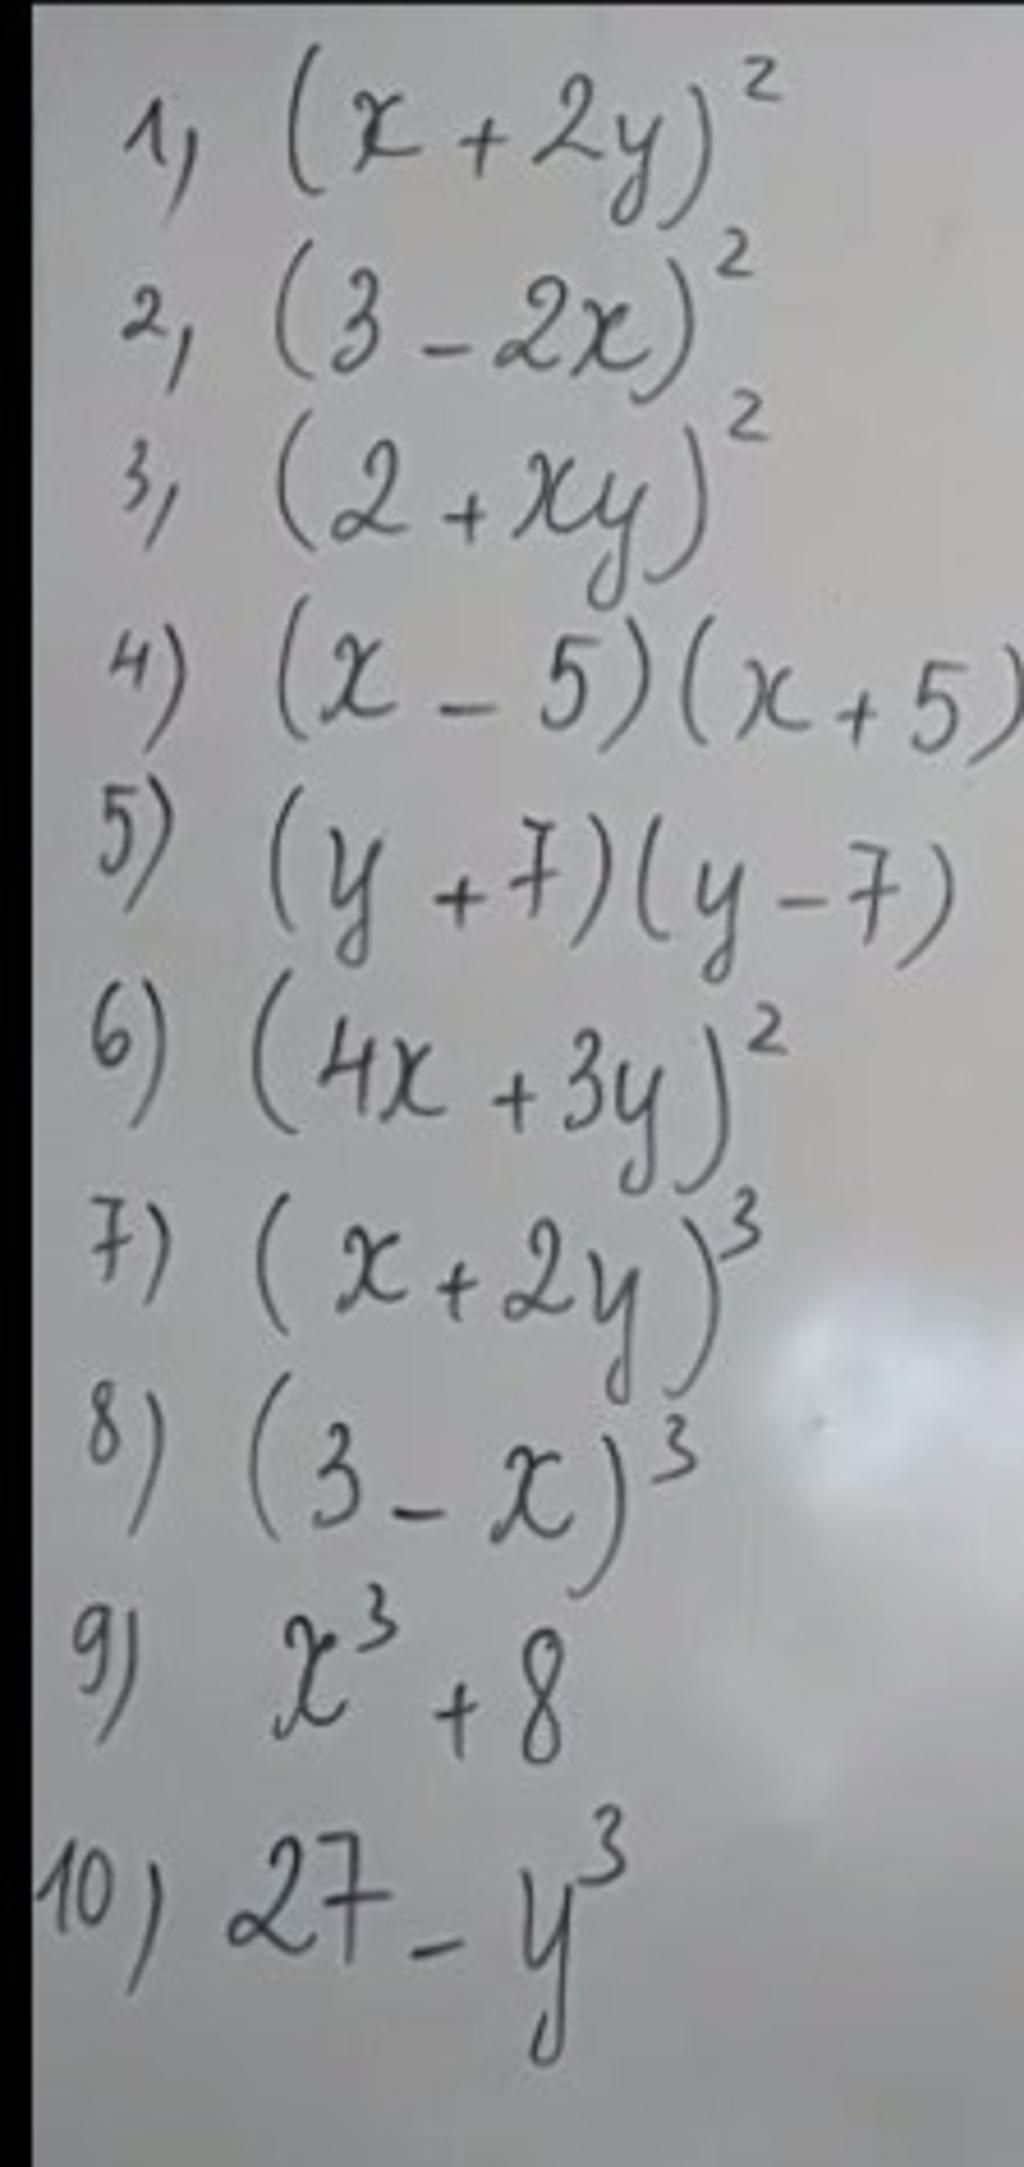 1, (x + 2y)²
2, (3 - 2x)²
3, (2 + xy)²
4) (x - 5)(x + 5)
5) (y + 7)(y - 7)
6) (4x + 3y)²
7) (x + 2y)³
8) (3 - x)³
9) x³ + 8
10) 27 - y³